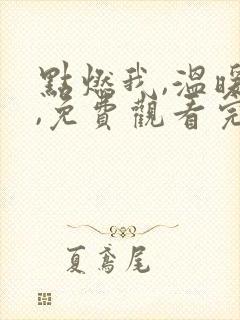 點燃我,溫暖
,免費觀看完
夏鳶尾